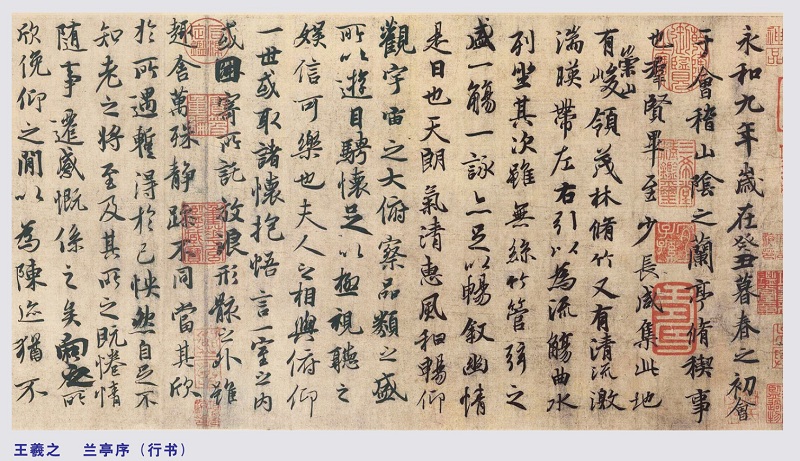 永和九年歲在癸丑暮春之初會
于會稽山陰之蘭亭脩稧事
也羣賢畢至少長咸集此地
有崇山峻領茂林脩竹又有清流激
湍暎帶左右引以為流觴曲水
列坐其次雖無絲竹管弦之
盛一觴一詠亦足以暢敘幽情
是日也天朗氣清惠風和暢仰
觀宇宙之大俯察品類之盛
所以遊目騁懷足以極視聽之
娛信可樂也夫人之相與俯仰
一世或取諸懷抱悟言一室之內
或因寄所託放浪形骸之外雖
趣舍萬殊靜躁不同當其欣
於所遇暫得於己怏然自足不
知老之將至及其所之既惓情
隨事遷感慨係之矣向之所
欣俛仰之閒以為陳迹猶不
王羲之 兰亭序（行书）